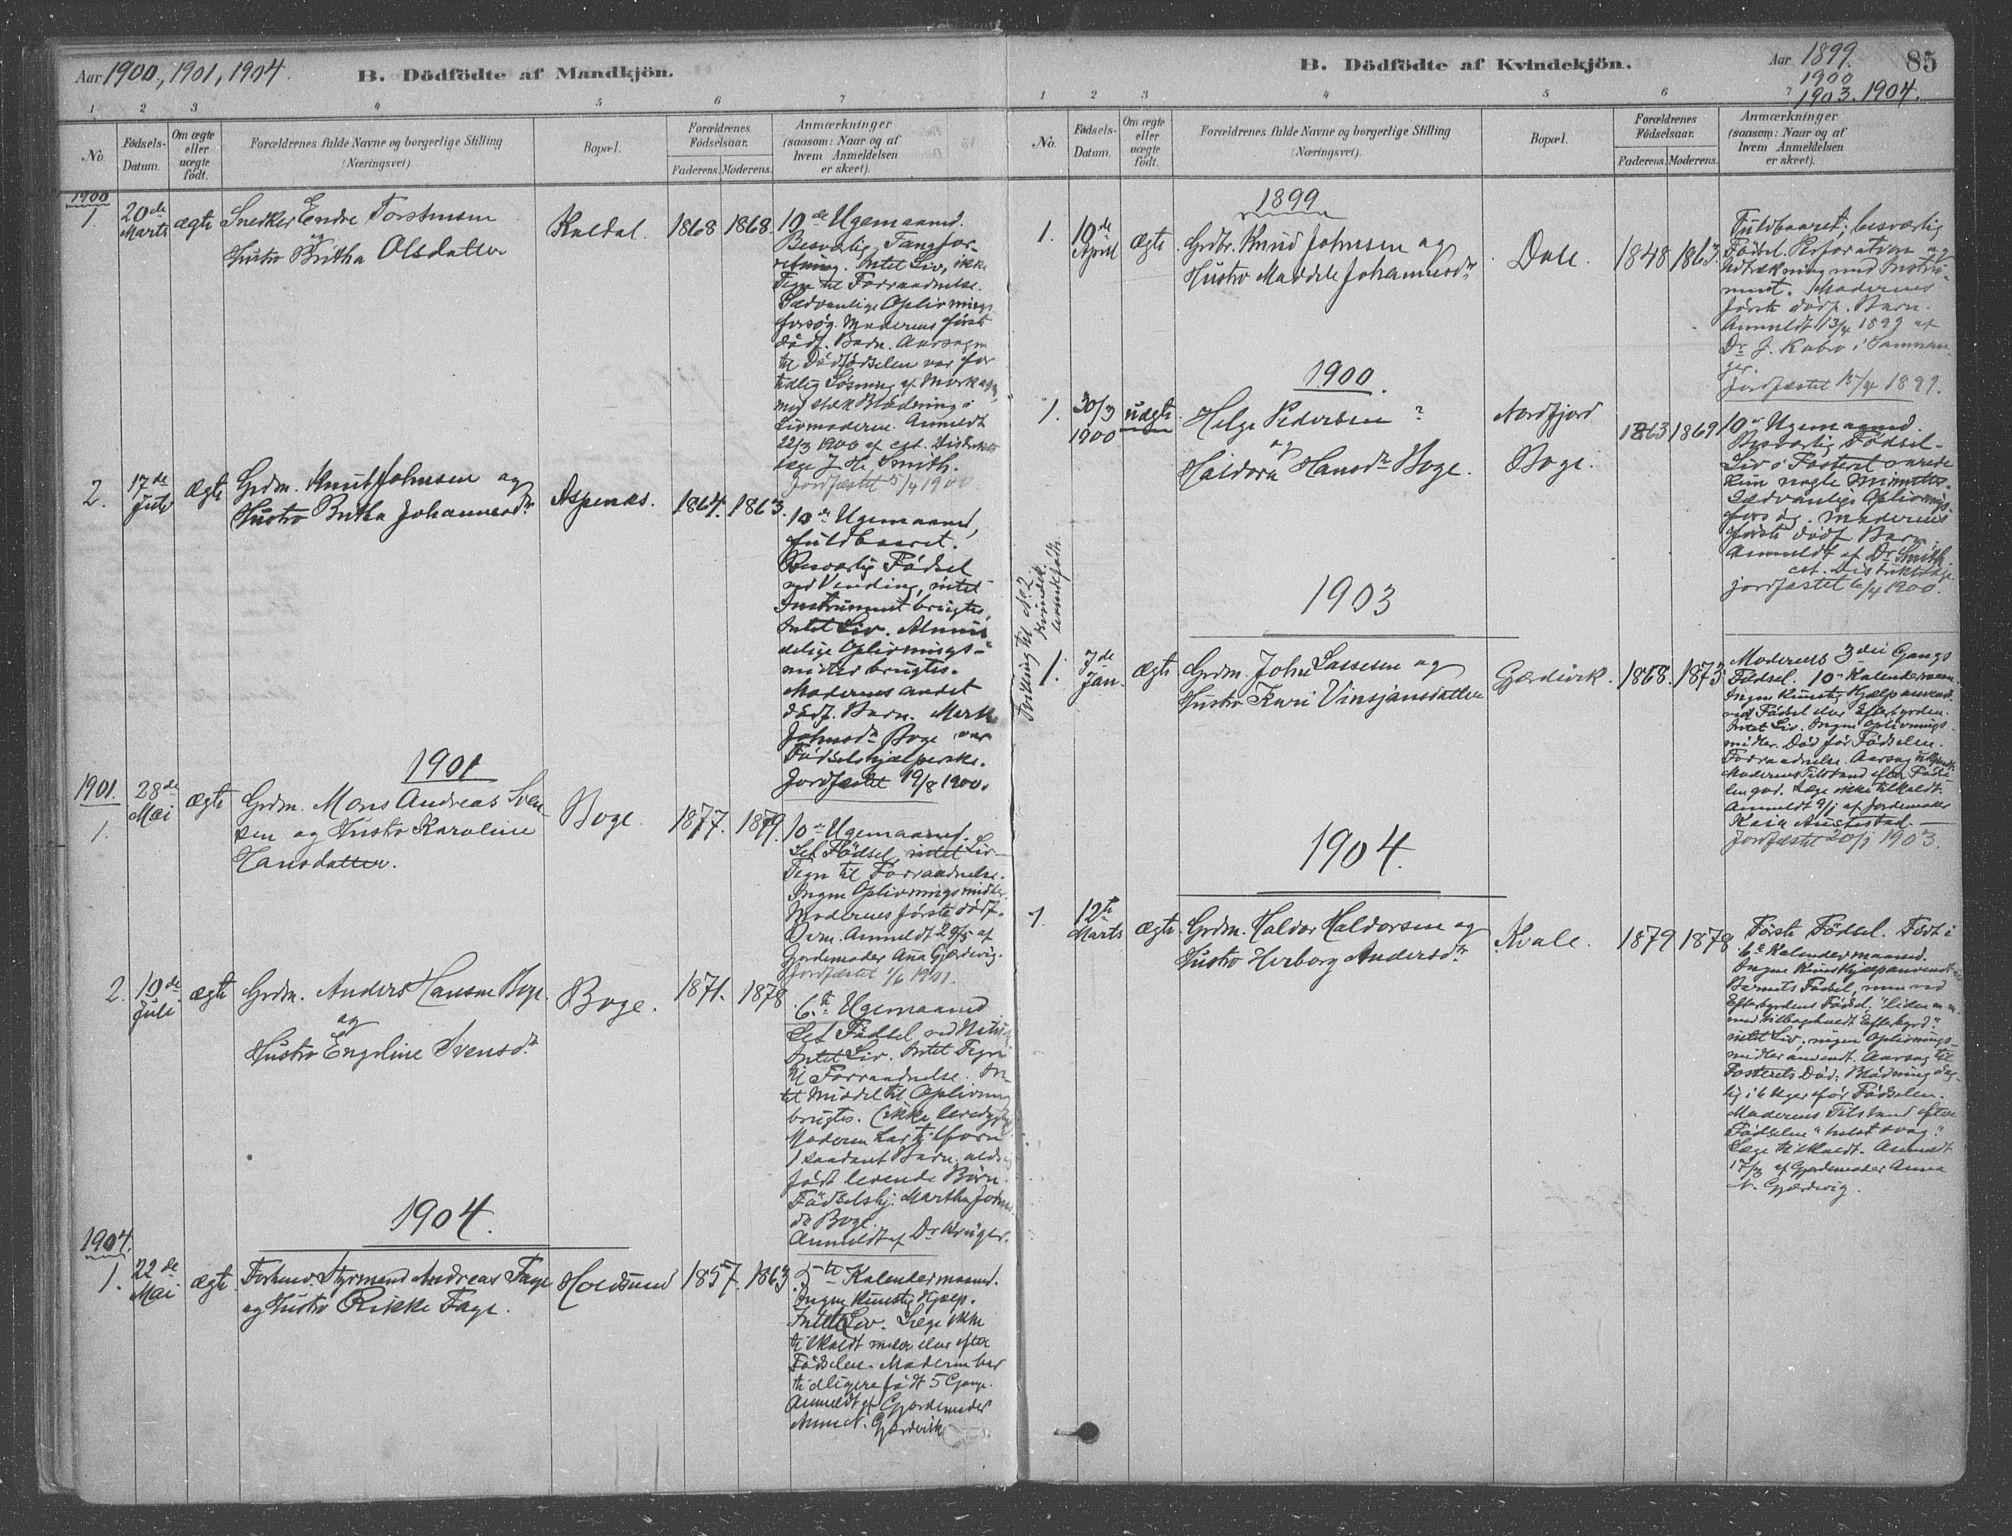 Aar 1900, 1901, 1904.
B. Dödfödte af Mandkjön.
1 2 3 4 5 6 7
No.
Fødsels-Datum.
Om ægte eller uægte født.
Forældrenes fulde Navne og borgerlige Stilling
(Næringsvei).
Bopæl.
Forældrenes Fødselsaar.
Faderens. Moderens.
Anmærkninger
(saasom: Naar og af
hvem Anmeldelsen
er skeet).
1900
1. 20de Marts ægte Snedker Endre Torstensen
og
Hustro Britha Olsdatter
Kaldal. 1868 1868.
10de Ugemaaned.
Besværlig Tangfor-
retning. Intet Liv, ikke
Tegn til Forraadnelse.
Sædvanlige Oplivnings
forsøg. Moderens første
dödf. Barn. Aarsagen
til Dödfødselen var for
tidlig Løsning af Morkagen
med stærk Blødning i
Livmoderen. Anmeldt
22/3 1900 af cst. Distrikts
læge J. H. Smith.
Jordfæstet 5/4 1900.
2. 17de Juli ægte Grdm. Knut Johnsen og
Hustro Britha Johannesdr
Aspenæs. 1864. 1863.
10de Ugemaaned,
fuldbaaret.
Besværlig Födsel
ved Vending, intet
Instrument brugtes.
Intet Liv. Almin-
delige Oplivnings-
midler brugtes.
Moderens andet
dødf. Barn. Marth
Johnsdr Boge var
Fødselshjælperske.
Jordfæstet 19/8 1900.
1901
1901.
1. 28de Mai ægte Grdm. Mons Andreas Sven
sen og Hustro Karoline
Hansdatter.
Boge. 1877. 1879.
10de Ugemaaned.
Let Födsel, intet Liv-
Tegn til Forraadnelse.
Ingen Oplivningsmidler
Moderens første dødf.
Barn. Anmeldt 29/5 af
Gjordemoder Ana Gjærdvig.
Jordfæstet 1/6 1901.
2. 10de Juli ægte Grdm. Anders Hansen Boge
og
Hustro Engeline Svensdr
Boge. 1871. 1878
6te Ugemaaned
Let Födsel
Intet Liv. Intet Tegn
til Forraadnelse. In-
tet Middel til Oplivning
brugtes. (ikke levedygtig
Moderen har tilforn
1 saadant Barn, aldrig
født levende Börn.
Födselshj. Martha Johns
dr Boge.
Anmeldt af Dr Krüger.
1904.
1904.
1. 22de Mai ægte Forhenv. Styrmand Andreas Fage
og Hustro Rikke Fage.
Holdsund 1857. 1863.
5te Kalendermaaned.
Ingen kunstig Hjælp.
Intet Liv. Læge ikke
tilkaldt under eller efter
Födselen. Moderen har
tidligere født 5 Gange.
Anmeldt af Gjordemoder
Anna N. Gjærdvik
B. Dödfödte af Kvindekjön.
Aar 1899.
1900
1903. 1904.
85
1 2 3 4 5 6 7
No.
Fødsels-Datum.
Om ægte eller uægte født.
Forældrenes fulde Navne og borgerlige Stilling
(Næringsvei).
Bopæl.
Forældrenes Fødselsaar.
Faderens. Moderens.
Anmærkninger
(saasom: Naar og af
hvem Anmeldelsen
er skeet).
1899
1. 10de April ægte Grdbr. Knud Johnsen og
Hustro Maddele Johannesdr
Dale. 1848 1863.
Fuldbaaret; besværlig
Födsel. Perforation og
Udtrækning med Instru-
ment. Moderens
første dødf. Barn.
Anmeldt 13/4 1899 af
Dr J. Kobro i Samnan-
ger.
Jordfæstet 15/4 1899.
1900.
1. 30/3 1900 uægte Helge Pedersen ?
og
Haldora Hansdr Boge.
Nordfjord
Boge. 1863 1869
10de Ugemaaned.
Besværlig Födsel-
Liv i Fosteret
kun nogle Minutter.
Sædvanlige Oplivnings
forsøg. Moderens
første dødf Barn.
Anmeldt af Dr Smith
cst. Distriktslæge
jordfæstet 6/4 1900.
1903
Tvilling til No 2
Kvindek.
levendefødte.
1. 7de Jan. ægte Grdm. John Lassesen og
Hustro Kari Vinsjansdatter
Gjærdvik. 1868. 1873
Moderens 3die Gangs
Födsel. 10de Kalendermaan.
Ingen kunstig Hjælp anvendt
ved Födsel eller Efterbyrden.
Intet Liv. Ingen Oplivnings-
midler. Död før Födselen.
Forraadnelse. Aarsag ubekjendt
Moderens Tilstand efter Födse-
len god. Læge ikke tilkaldt.
Anmeldt 9/1 af Jordemoder
Kaia Austestad.
Jordfæstet 20/1 1903.
1904.
1. 12te Marts ægte Grdm. Haldor Haldorsen og
Hustro Herborg Andersdr
Kvale. 1879 1878
Første Födsel. Födt i
6te Kalendermaaned.
Ingen Kunsthjælp anvendt
Barnets Födsel, men ved
Efterbyrdens Födsel,
med tilbageholdt Efterbyrd."
intet Liv, ingen Oplivnings-
midler anvendt. Aarsag til
Fosterets Död: Blødning dag-
lig i 6 Uger før Födselen.
Moderens Tilstand efter
Födselen "helst svag".
Læge tilkaldt. Anmeldt
17/3 af Gjordemoder Anna
N. Gjærdvig.